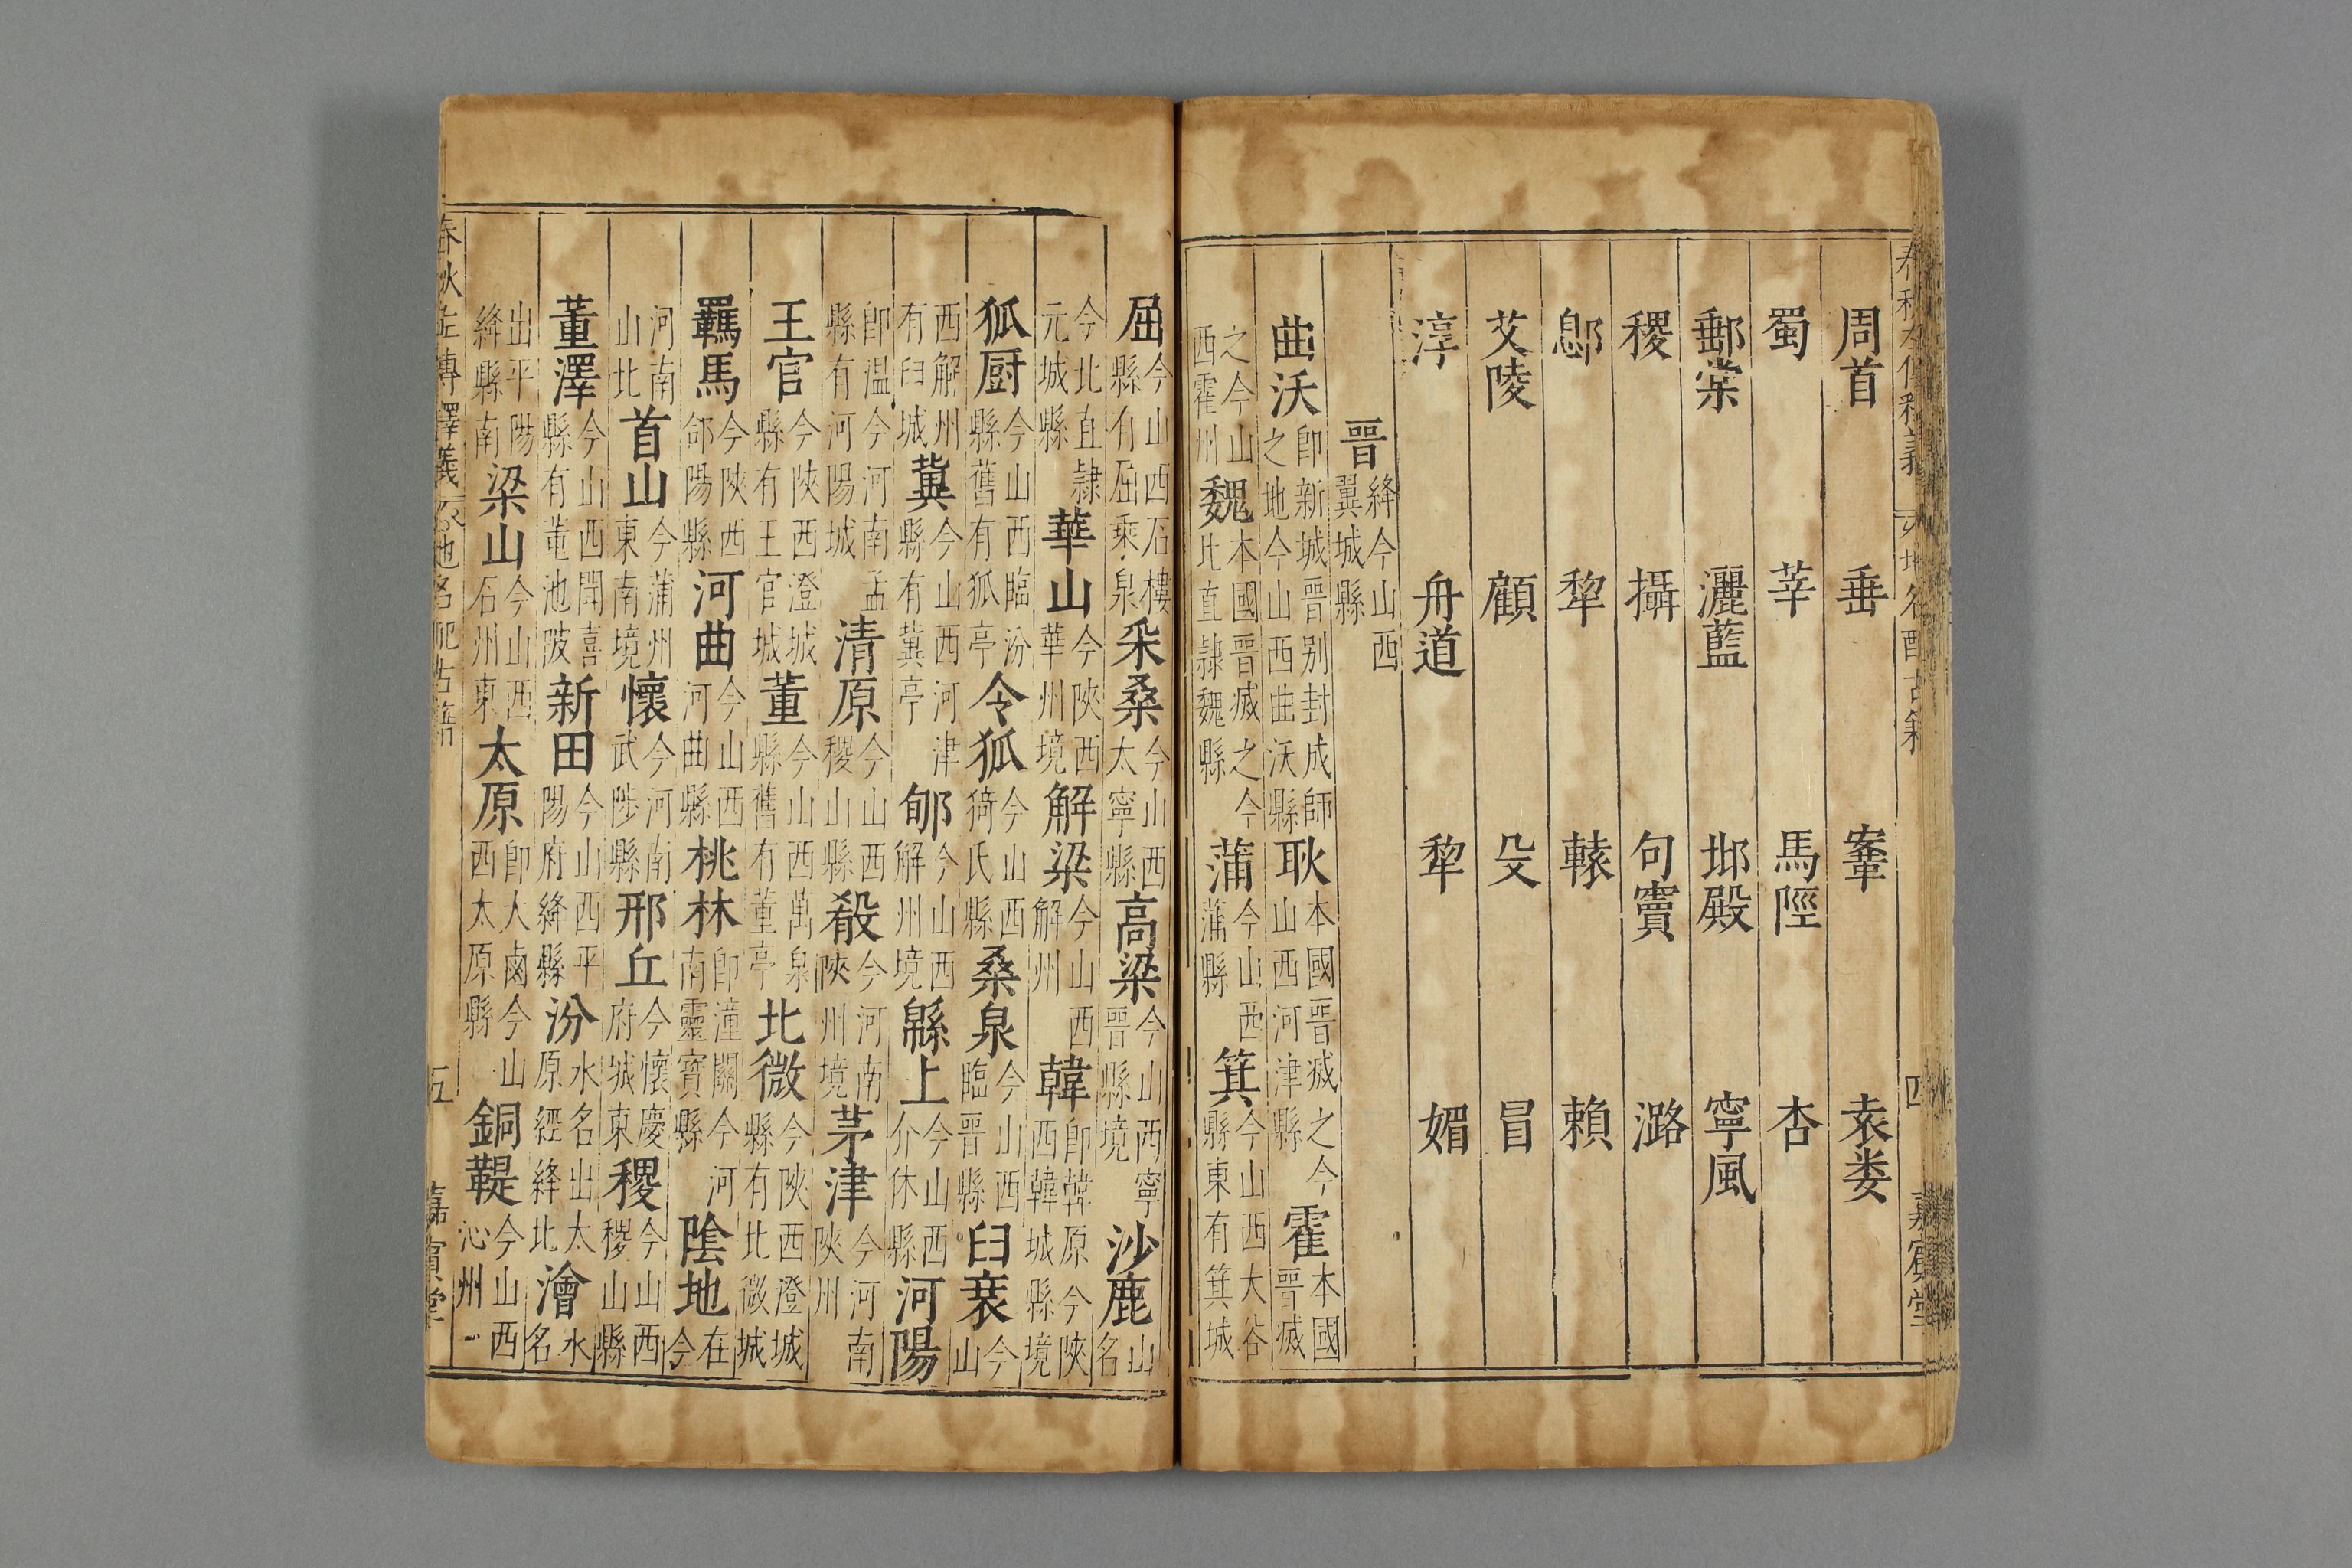 春秋左傳釋義 地名配古籍 四 嘉賓堂
周首 垂 鞌 袁婁
蜀 莘 馬陘 杏
郵棠 灑藍 邶殿 寧風
稷 攝 句竇 潞
鄎 犂 轅 賴
艾陵 顧 殳 冒
淳 舟道 犂 媚
晉 絳今山西翼城縣
曲沃 即新城晉別封成師之地今山西曲沃縣 耿 本國晉滅之今山西河津縣 霍 本國晉滅
之今山西霍州 魏 本國晉滅之今北直隸魏縣 蒲 今山西蒲縣 箕 今山西大谷縣東有箕城
屈 今山西石樓縣有屈乘泉 采桑 今山西太寧縣 高梁 今山西寧晉縣境 沙鹿 山名
今北直隸元城縣 華山 今陝西華州境 解梁 今山西解州 韓 即韓原今陝西韓城縣境
狐厨 今山西臨汾縣舊有狐亭 令狐 今山西猗氏縣 桑泉 今山西臨晉縣 臼衰 今山
西解州有臼城 冀 今山西河津縣有冀亭 郇 今山西解州境 緜上 今山西介休縣 河陽
即溫今河南孟縣有河陽城 清原 今山西稷山縣 殽 今河南陝州境 茅津 今河南陝州
王官 今陝西澄城縣有王官城 董 今山西萬泉縣舊有董亭 北微 今陝西澄城縣有北微城
羈馬 今陝西郃陽縣 河曲 今山西河曲縣 桃林 即潼關今河南靈寶縣 陰地 在今
河南山北 首山 今蒲州東南境 懷 今河南武陟縣 邢丘 今懷慶府城東 稷 今山西稷山縣
董澤 今山西聞喜縣有董池陂 新田 今山西平陽府絳縣 汾 水名出太原經絳北 澮 水名
出平陽絳縣南 梁山 今山西石州東 太原 即大鹵今山西太原縣 銅鞮 今山西沁州
春秋左傳釋義 地名配古籍 五 嘉賓堂